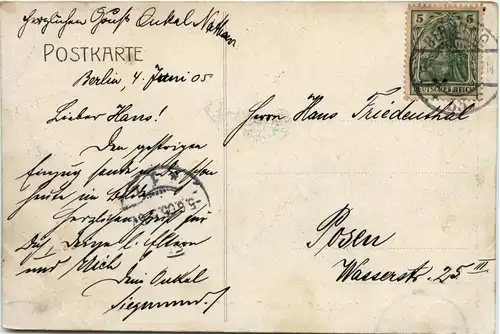 Herzlichen Gruß Onkel Nathan
POSTKARTE
Berlin, 4. Juni 05
Lieber Hans!
Den gestrigen
Einzug sende
heute im Bilde
Herzlichen Gruß für
Dich, Deine l. Eltern
und Mich
Dein Onkel
Siegmund
5
DEUTSCHES REICH
Herrn Hans Friedenthal
Posen
Wasserstr. 25 III